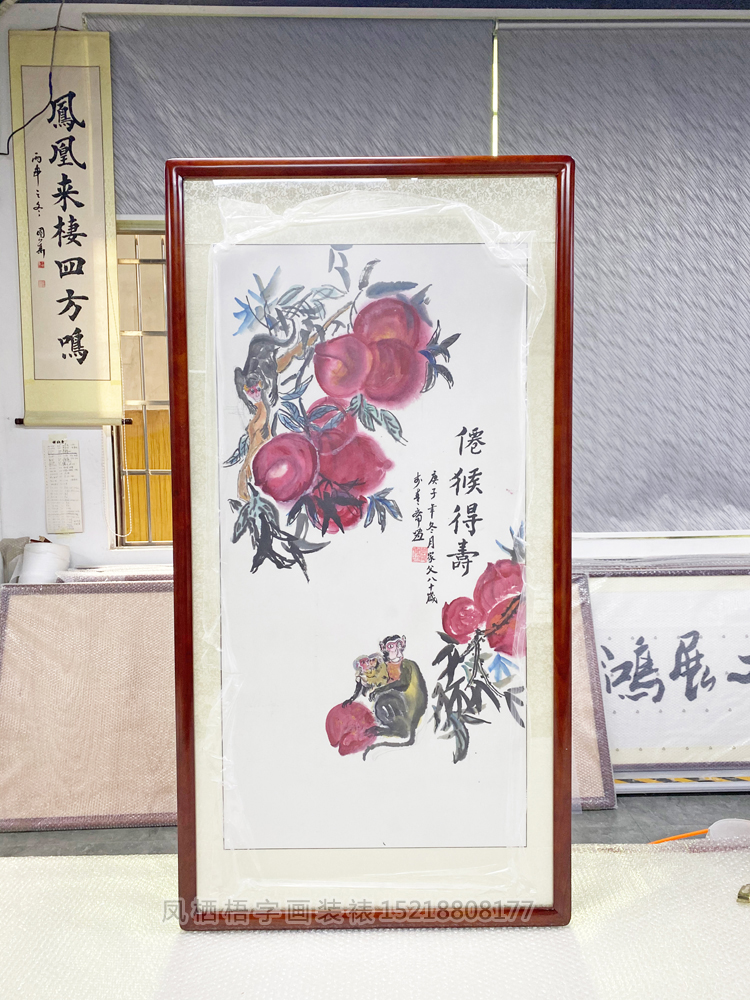 鳳凰来棲四方鳴
丙申之冬
僊猴得壽
庚子年冬月家父八十歲
鴻展
凤栖梧字画装裱15218808177